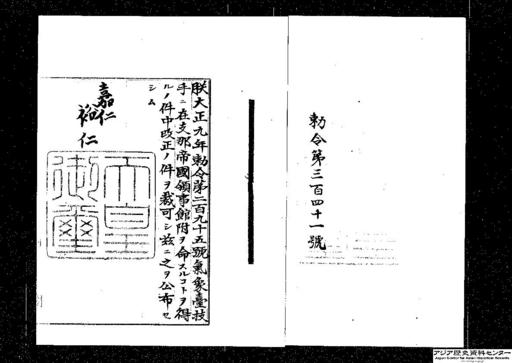 勅令第三百四十一號
朕大正九年勅令第二百九十五號氣象臺技
手ニ在支那帝國領事館附ヲ命スルコトヲ得
ルノ件中改正ノ件ヲ裁可シ茲ニ之ヲ公布セ
シム
嘉仁
裕仁
天皇御璽
アジア歴史資料センター
Japan Center for Asian Historical Records